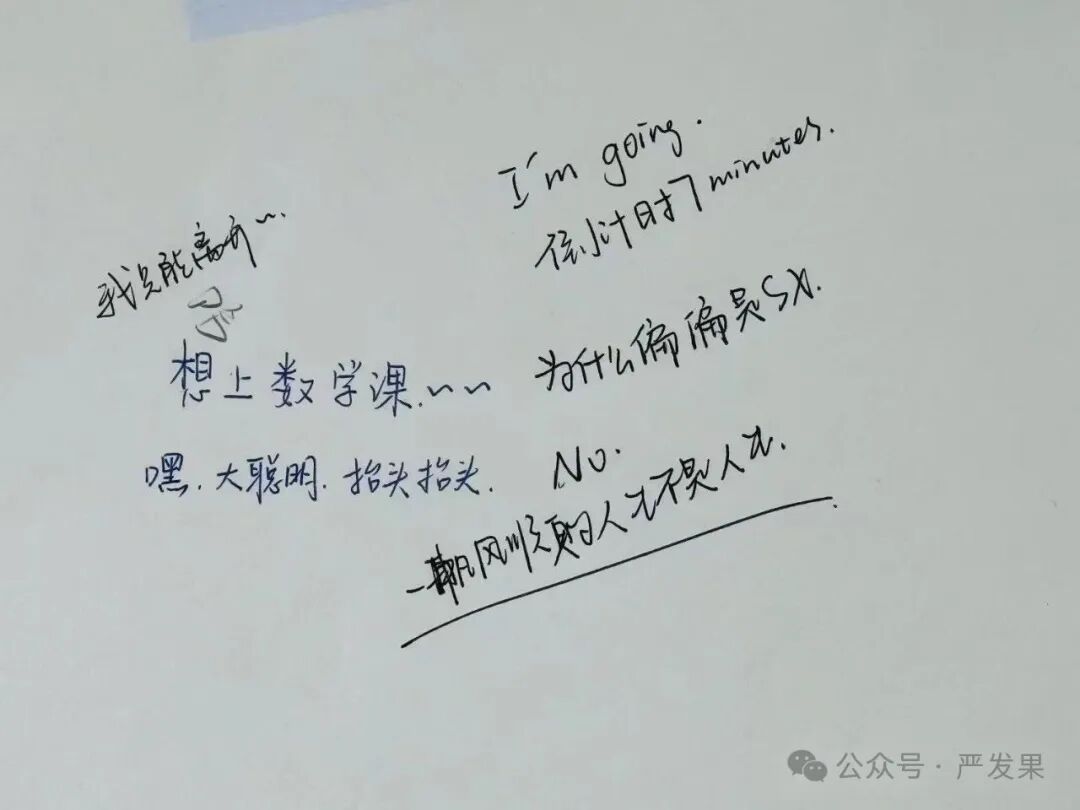 I'm going.
倒计时7 minutes.
我只能离开~.
想上数学课.~~
为什么偏偏是SX.
嘿.大聪明.抬头抬头.
No.
一帆风顺的人才不是人才.
公众号·严发果